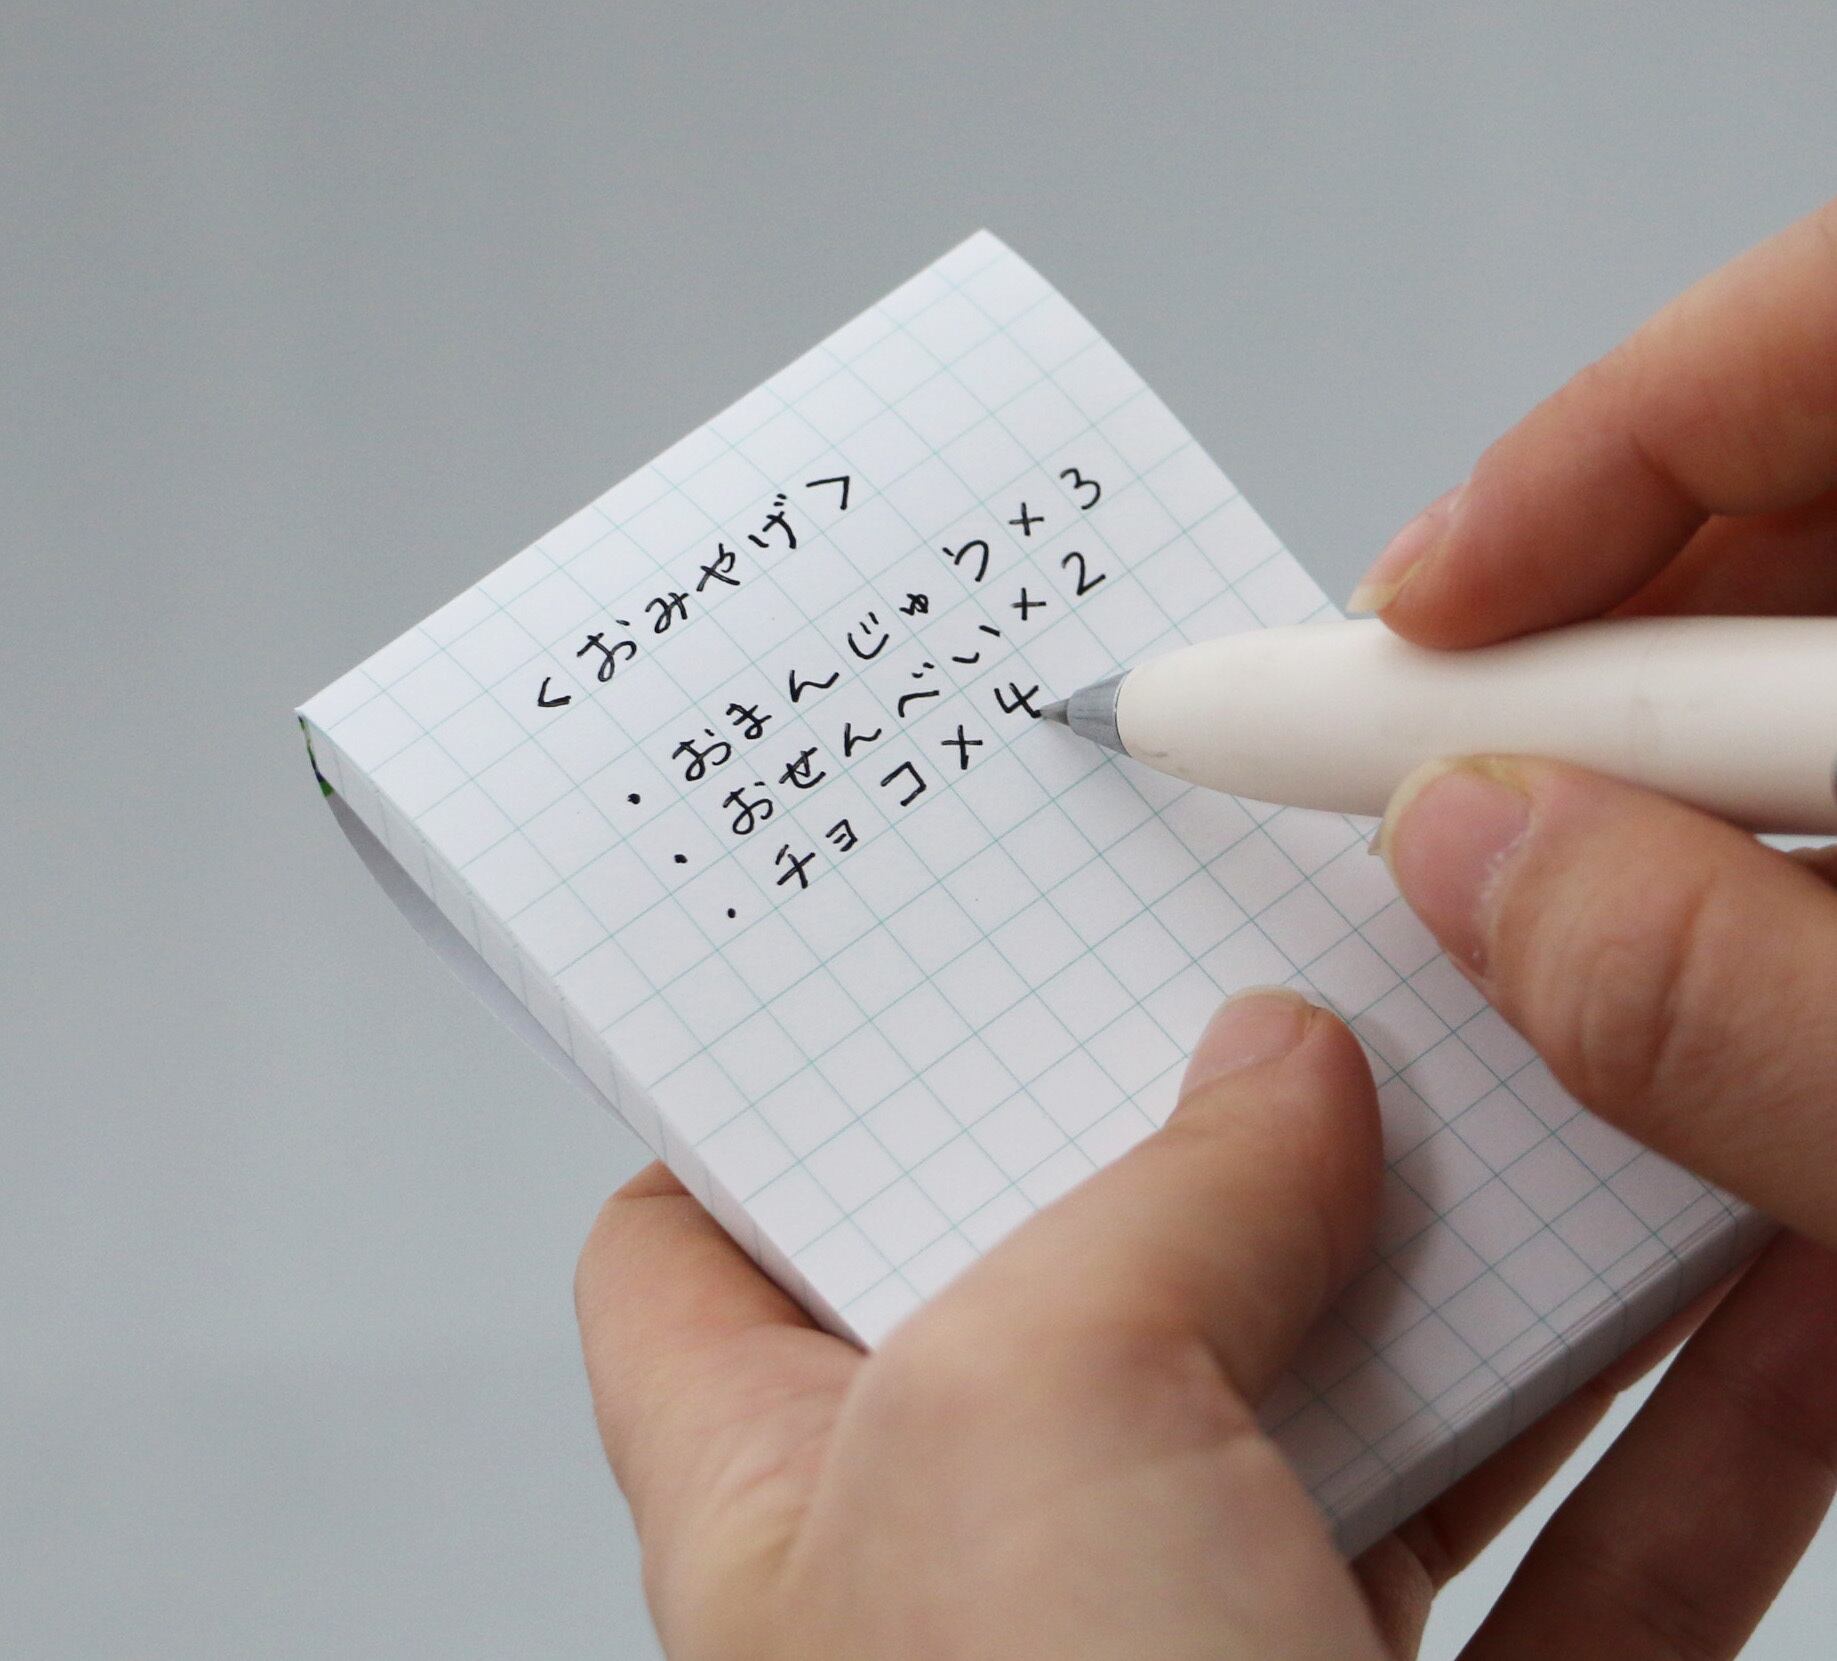 <おみやげ>
・おまんじゅう×3
・おせんべい×2
・チョコ×4